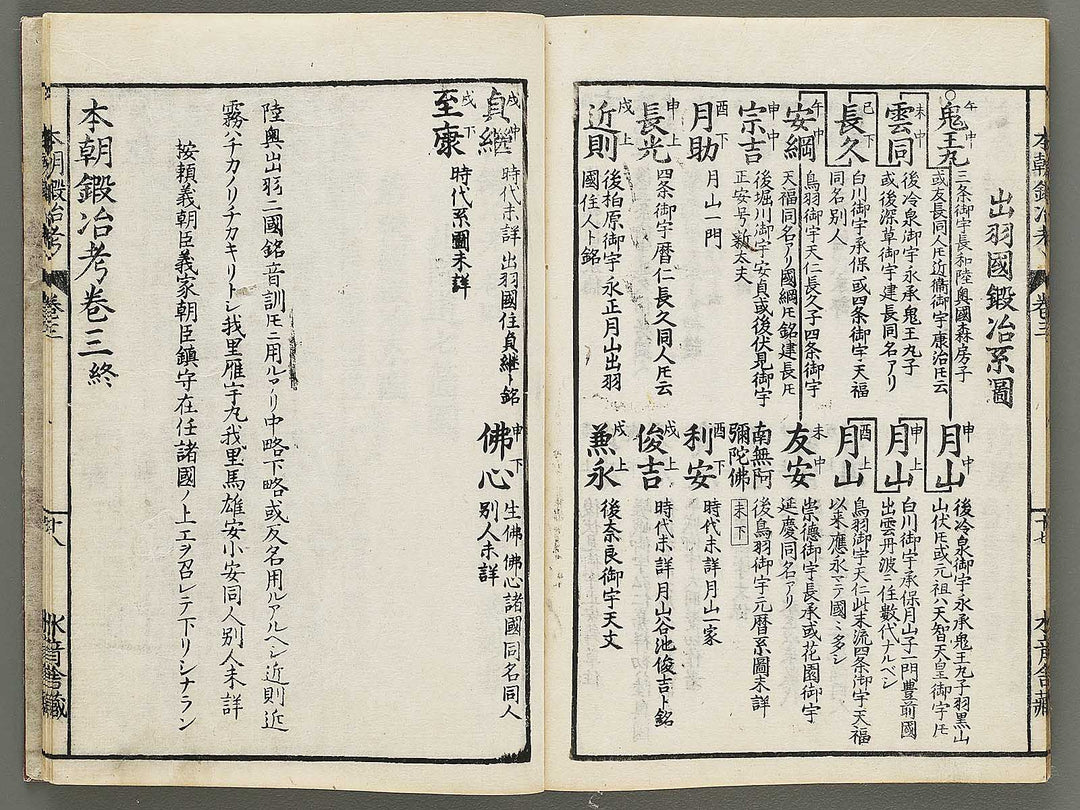 出羽國鍛冶系圖
午 中
鬼王丸
三条御宇長和陸奧國森房子
或友長同人𪜈近衞御宇康治𪜈云
未 中
雲同
後冷泉御宇永承鬼王丸子
或後深草御宇建長同名アリ
巳 下
長久
白川御宇承保或四条御宇天福
同名別人
午 中
安綱
鳥羽御宇天仁長久子四条御宇
天福同名アリ國綱𪜈銘建長𪜈
申 中
宗吉
後堀川御宇安貞或後伏見御宇
正安号新太夫
酉 下
月助
月山一門
申 上
長光
四条御宇暦仁長久同人𪜈云
戌 上
近則
後柏原御宇永正月山出羽
國住人ト銘
申 中
月山
後冷泉御宇永承鬼王丸子羽黒山
山伏𪜈或元祖ハ天智天皇御宇𪜈
申 上
月山
白川御宇承保月山子一門豊前國
出雲丹波ニ住數代ナルベシ
酉 上
月山
鳥羽御宇天仁此末流四条御宇天福
以来應永マテ國ニ多シ
未 中
友安
崇德御宇長承或花園御宇
延慶同名アリ
南無阿
彌陀佛
未下
後鳥羽御宇元暦系圖未詳
酉 下
利安
時代未詳月山一家
戌 上
俊吉
時代未詳月山谷池俊吉ト銘
戌 上
兼永
後奈良御宇天文
戌 中
貞繼
時代未詳出羽國住貞継ト銘
戌 下
至康
時代系圖未詳
申 下
佛心
生佛佛心諸國同名同人
別人未詳
陸奧出羽二國銘音訓𪜈ニ用ルアリ中略下略或反名用ルアルヘシ近則近
霧ハチカノリチカキリトシ我里雁宇丸我里馬雄安小安同人別人未詳
按頼義朝臣義家朝臣鎮守在任諸國ノ上工ヲ召レテ下リシナラン
本朝鍛冶考卷三終
本朝鍛冶考
卷三
十七
水音舎藏
本朝鍛冶考
卷三
十八
水音舎藏